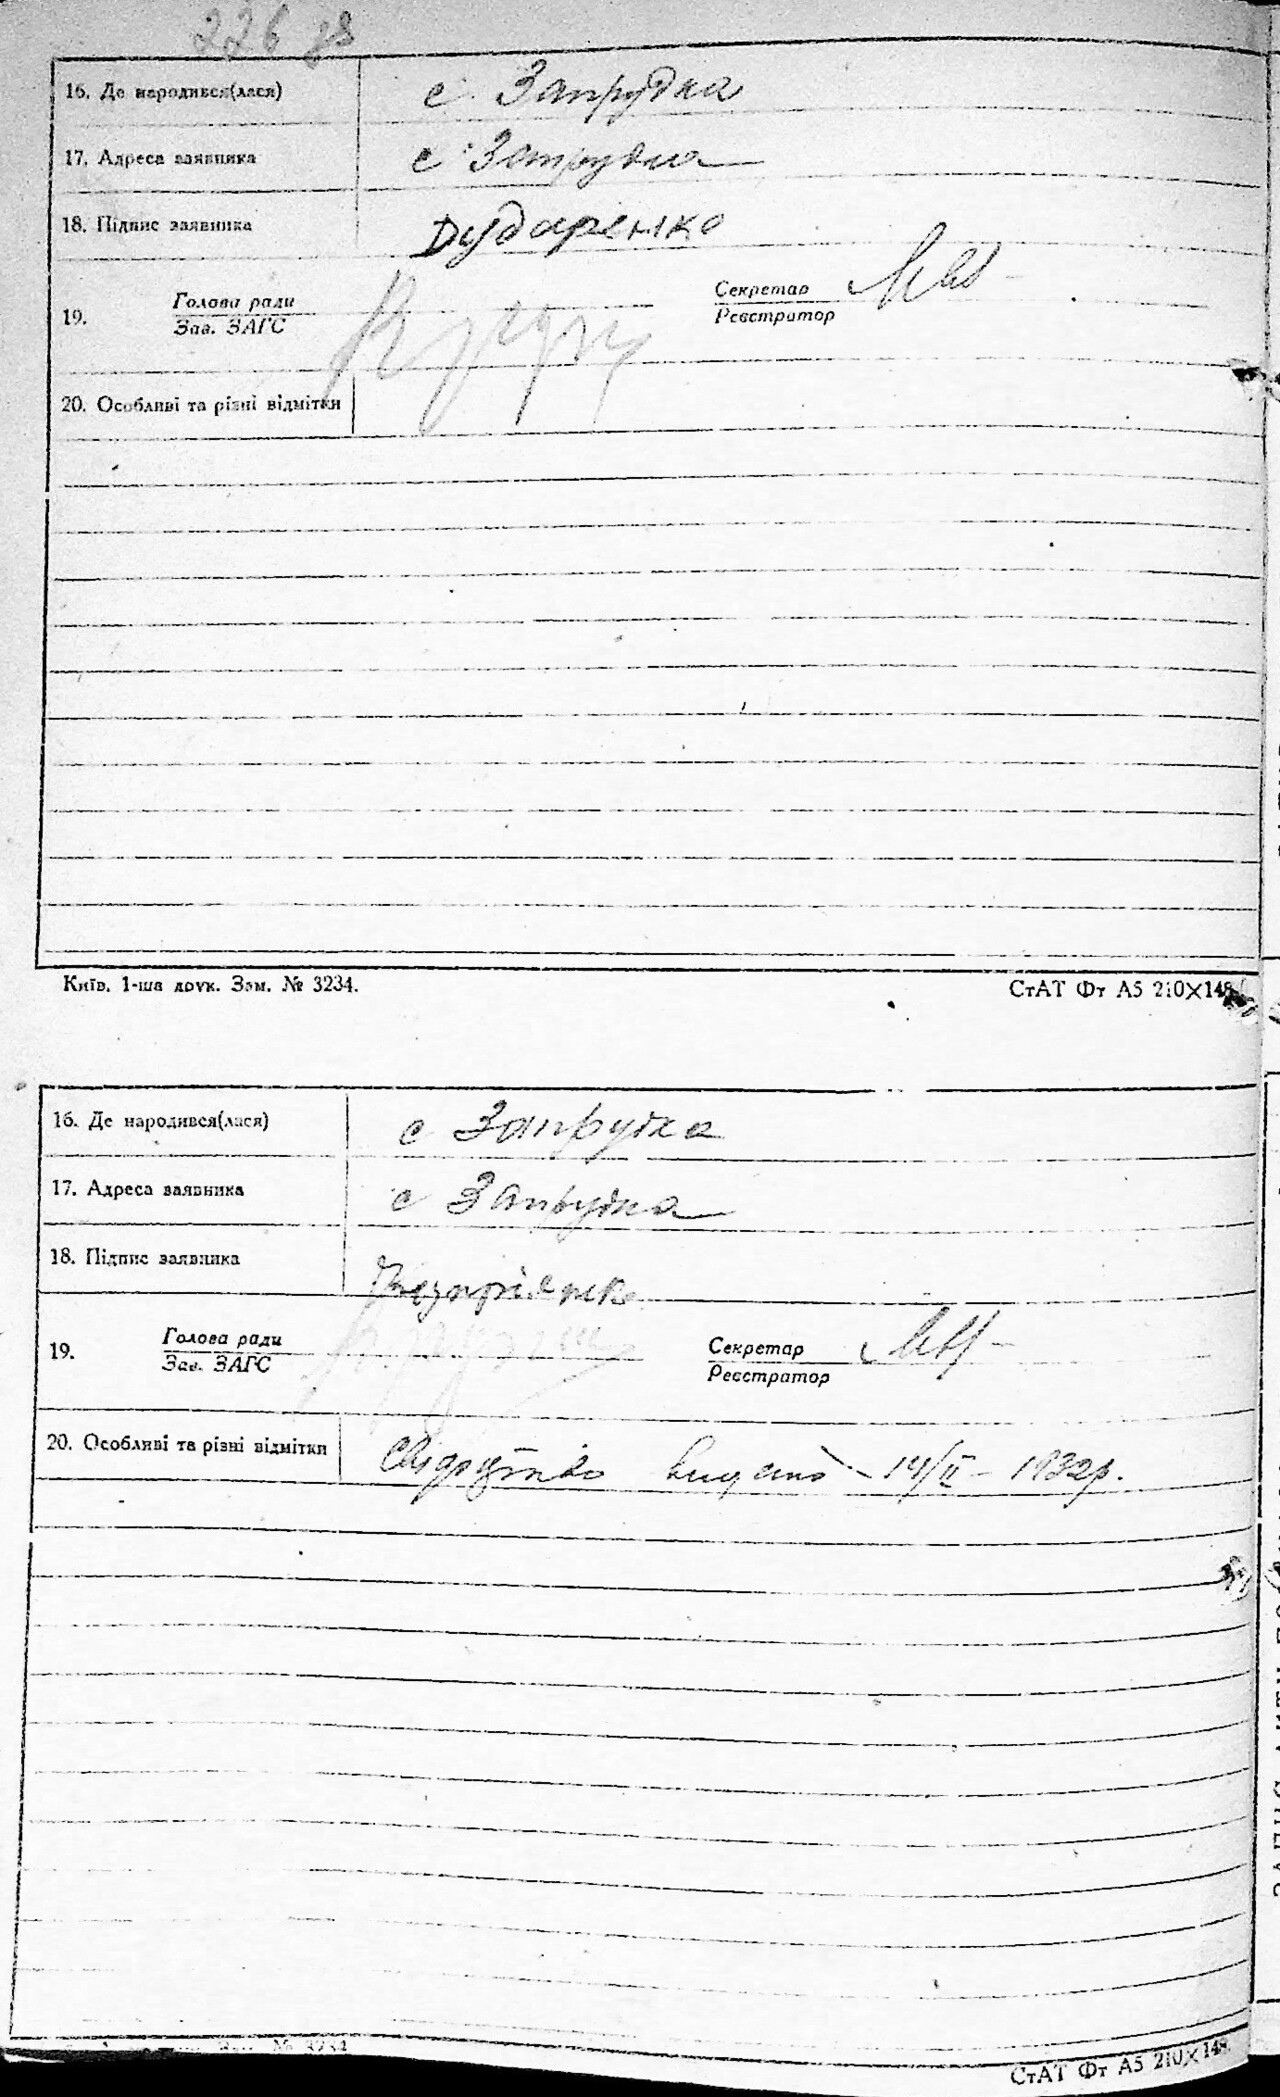 226 зв
16. Де народився(лася) с. Запрудка
17. Адреса заявника с. Запрудка
18. Підпис заявника Дударенко
19. Голова ради
Зав. ЗАГС
Секретар
Реєстратор
20. Особливі та різні відмітки
Київ, 1-ша друк. Зам. № 3234.
СтАТ Фт А5 210×148
16. Де народився(лася) с Запрудка
17. Адреса заявника с Запрудка
18. Підпис заявника
19. Голова ради
Зав. ЗАГС
Секретар
Реєстратор
20. Особливі та різні відмітки видано 14/II - 1932р.
№ 3234
СтАТ Фт А5 210×148